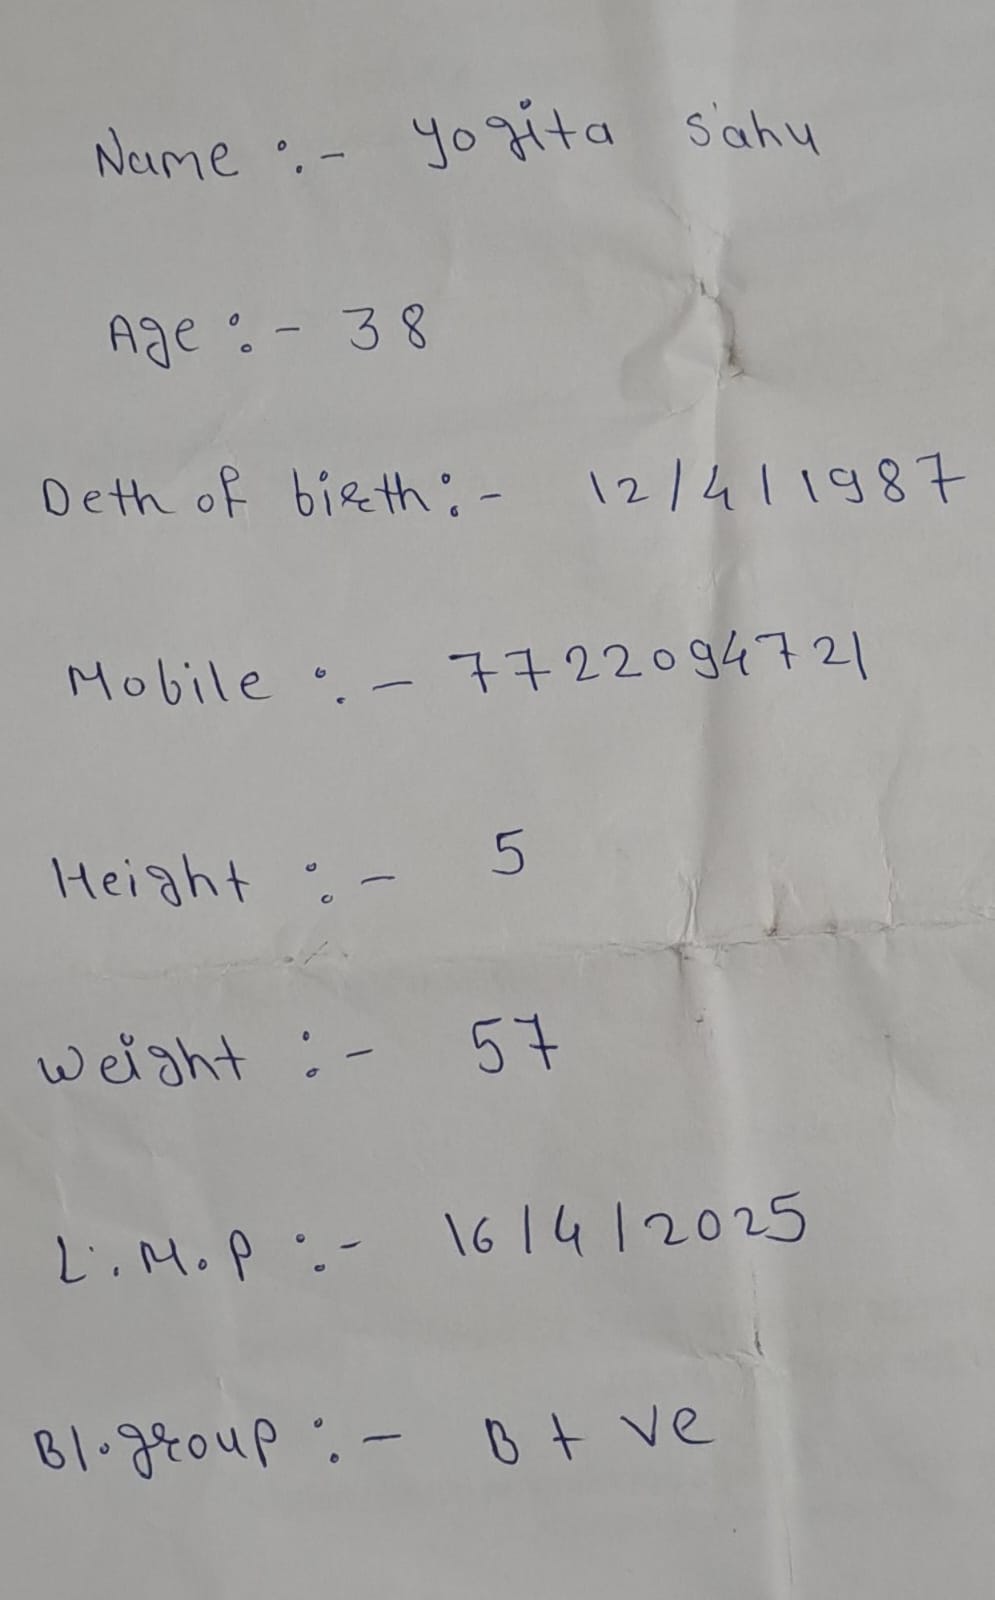 Name :- Yogita Sahu
Age :- 38
Deth of birth :- 12/4/1987
Mobile :- 7722094721
Height :- 5
Weight :- 57
L.M.P :- 16/4/2025
Bl.group :- B+ve